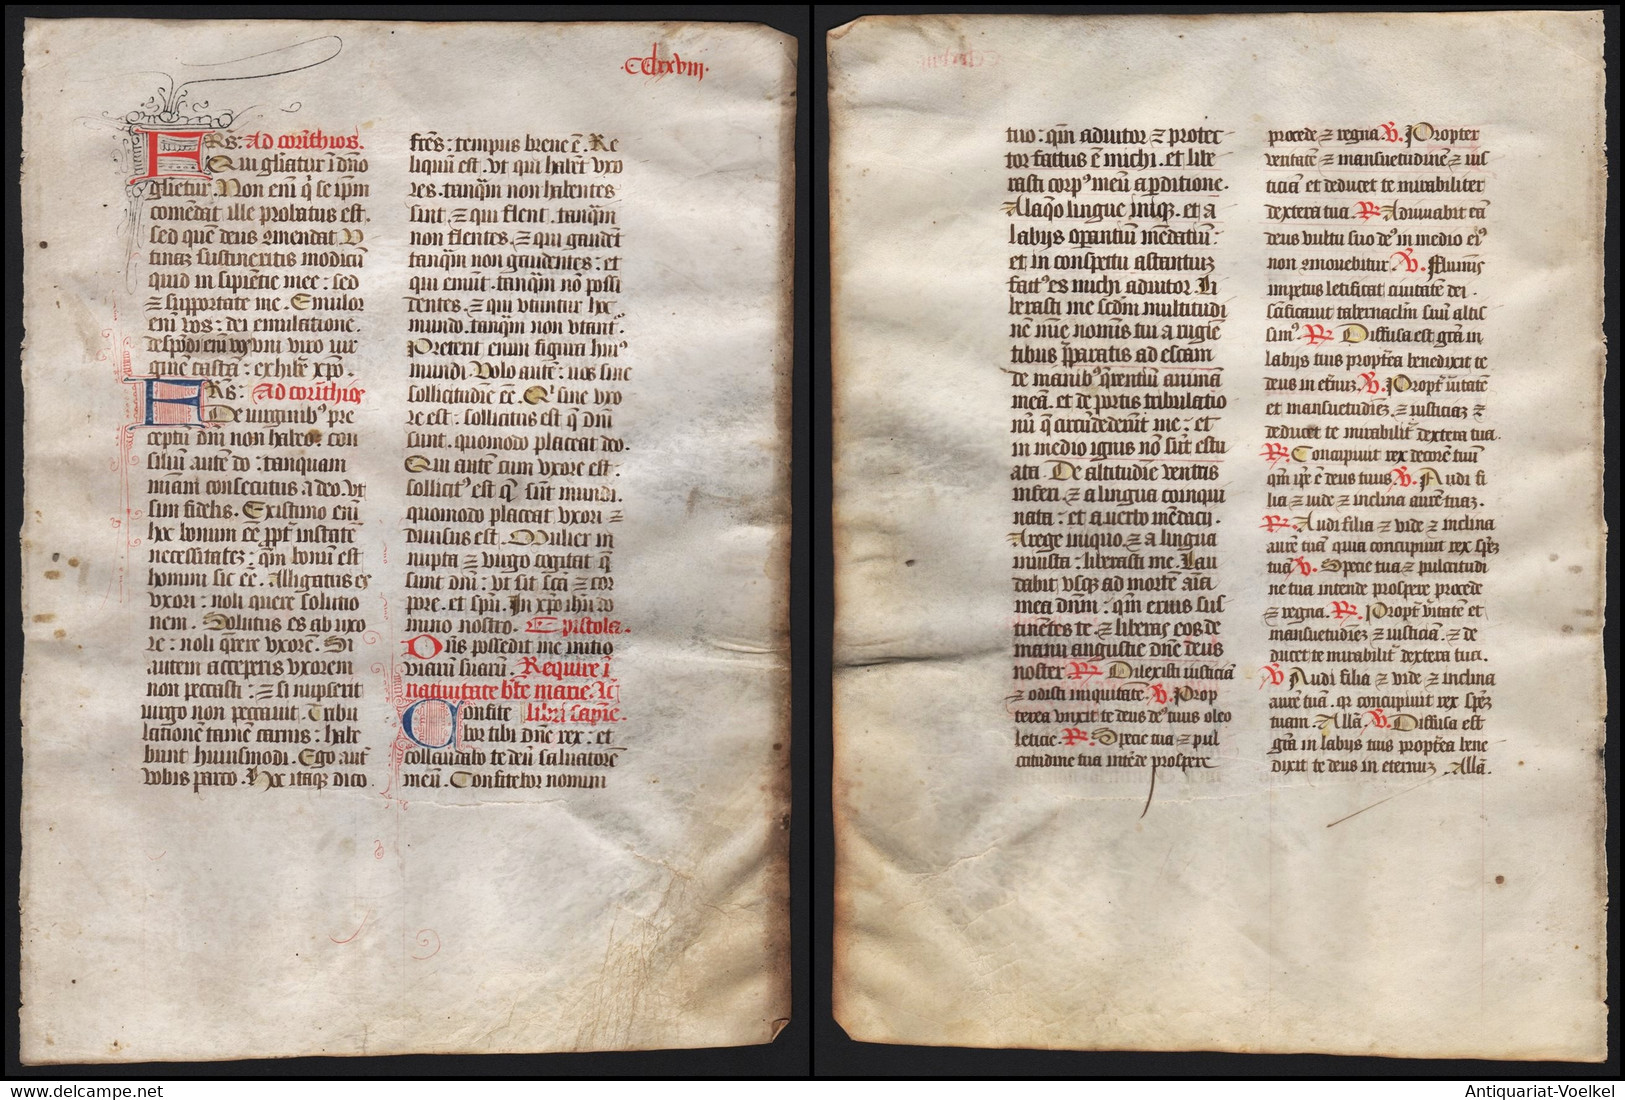 ·CClxxviii·
FRēs: Ad corīthios.
Qui gl̄iatur ī dn̄o
gl̄ietur. Non enī q̄ se ip̄m
com̄edat ille probatus est.
sed quē deus ꝯmendat. V
tinaꝫ sustineritis modicū
quid insipiētie mee: sed
⁊ supportate me. Emulor
enī vos: dei emulatione.
despōdi enī vos vni viro vir
ginē castā: exhibē xp̄o.
FRēs: Ad corīthios
De virginibꝰ pre
ceptū dn̄i non habeo: con
siliū autē do: tanquam
miām consecutus a deo. vt
sim fidelis. Existimo enī
hoc bonum eē ꝓpt̄ instātē
necessitatez: qm̄ bonū est
homini sic eē. Alligatus es
vxori: noli querere solutio
nem. Solutus es ab uxo
re: noli q̄rere vxorē. Si
autem acceperis vxorem
non peccasti: ⁊ si nupserit
virgo non peccauit. Tribu
lationē tamē carnis: habe
bunt huiusmodi. Ego aut̄
vobis parco. Hoc itaqꝫ dico.
fr̄ēs: tempus breue ē. Re
liquū est. vt qui habēt vxo
res. tanq̄m non habentes
sint. ⁊ qui flent. tanq̄m
non flentes. ⁊ qui gaudēt
tanq̄m non gaudentes: et
qui emūt. tanq̄m nō possi
dentes. ⁊ qui vtuntur hoc
mundo. tanq̄m non vtant̄.
Preterit enim figura huiꝰ
mundi. Volo autē: uos sine
sollicitudiē eē. Qi sine vxo
re est: sollicitus est q̄ dn̄i
sunt. quomodo placeat deo.
Qui autē cum vxore est:
sollicitꝰ est q̄ sūt mundi.
quomodo placeat vxori ⁊
diuisus est. Mulier in
nupta ⁊ virgo cogitat q̄
sunt dn̄i: vt sit scā ⁊ cor
pore. et spū. In xp̄o ihū do
mino nostro. Epistola.
Dn̄s possedit me initio
viarū suarū. Require ī
natiuitate bt̄e marie. Ac̄
Confite libri sapīe.
bor tibi dn̄e rex: et
collaudabo te deū saluatorē
meū. Confitebor nomini
tuo: qm̄ adiutor ⁊ protec
tor factus ē michi. et libe
rasti corpꝰ meū a perditione.
A laq̄o lingue iniqꝫ. et a
labijs operantiū mēdatiū:
et in conspectu astantiuꝫ
factꝰ es michi adiutor. Li
berasti me scdm̄ multitudi
nē mie nominis tui a rugiē
tibus p̄paratis ad escam
de manibꝰ q̄rentiū animā
meā. et de portis tribulatio
nū q̄ circūdederūt me: et
in medio ignis nō sūt estu
ata. De altitudie ventris
inferi. ⁊ a lingua coinqui
nata: et a uerbo mēdacij.
A rege iniquo. ⁊ a lingua
iniusta: liberasti me. Lau
dabit vsqꝫ ad mortē aīa
mea dnm̄: qm̄ eruis sus
tinētes te. ⁊ liberas eos de
manu angustie dn̄e deus
noster. R̶. Dilexisti iusticiā
⁊ odisti iniquitatē. V̶. Prop
terea vnxit te deus deꝰ tuus oleo
leticie. R̶. Specie tua ⁊ pul
critudine tua intēde prospere
procede ⁊ regna. V̶. Propter
veritatē ⁊ mansuetudinē ⁊ ius
ticiā et deducet te mirabiliter
dextera tua. R̶. Adiuuabit eā
deus vultu suo deꝰ in medio eiꝰ
non ꝯmouebitur. V̶. Fluminis
impetus letificat ciuitatē dei.
sc̄ificauit tabernacl̄m suū altis
simꝰ. R̶. Diffusa est gr̄a in
labijs tuis propt̄ea benedixit te
deus in et̄nuꝫ. V̶. Propt̄ v̄itatē
et mansuetudiēꝫ ⁊ iusticiaꝫ ⁊
deducet te mirabilit̄ dextera tua.
R̶. Concipiuit rex decorē tuū
qm̄ ip̄e ē deus tuus. V̶. Audi fi
lia ⁊ vide ⁊ inclina aurē tuaꝫ.
R̶. Audi filia ⁊ vide ⁊ inclina
aurē tuā quia concupiuit rex sp̄eꝫ
tuā. V̶. Specie tua ⁊ pulcritudi
ne tua intende prospere procede
⁊ regna. R̶. Propt̄ v̄itatē et
mansuetudiēꝫ ⁊ iusticiā. ⁊ de
ducet te mirabilit̄ dextera tua.
V̶. Audi filia ⁊ vide ⁊ inclina
aurē tuā. qr concipiuit rex sp̄eꝫ
tuam. Allā. V̶. Diffusa est
gr̄a in labijs tuis propt̄ea bene
dixit te deus in eternuꝫ. Allā.
www.delcampe.net
Antiquariat-Voelkel